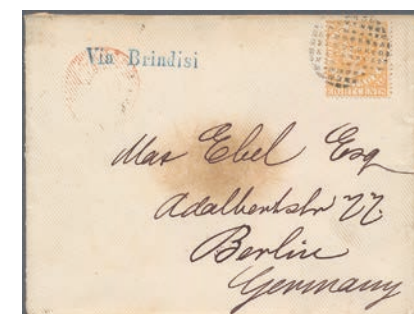 Via Brindisi
Max Ebel Esq
Adalbertstr 77.
Berlin
Germany